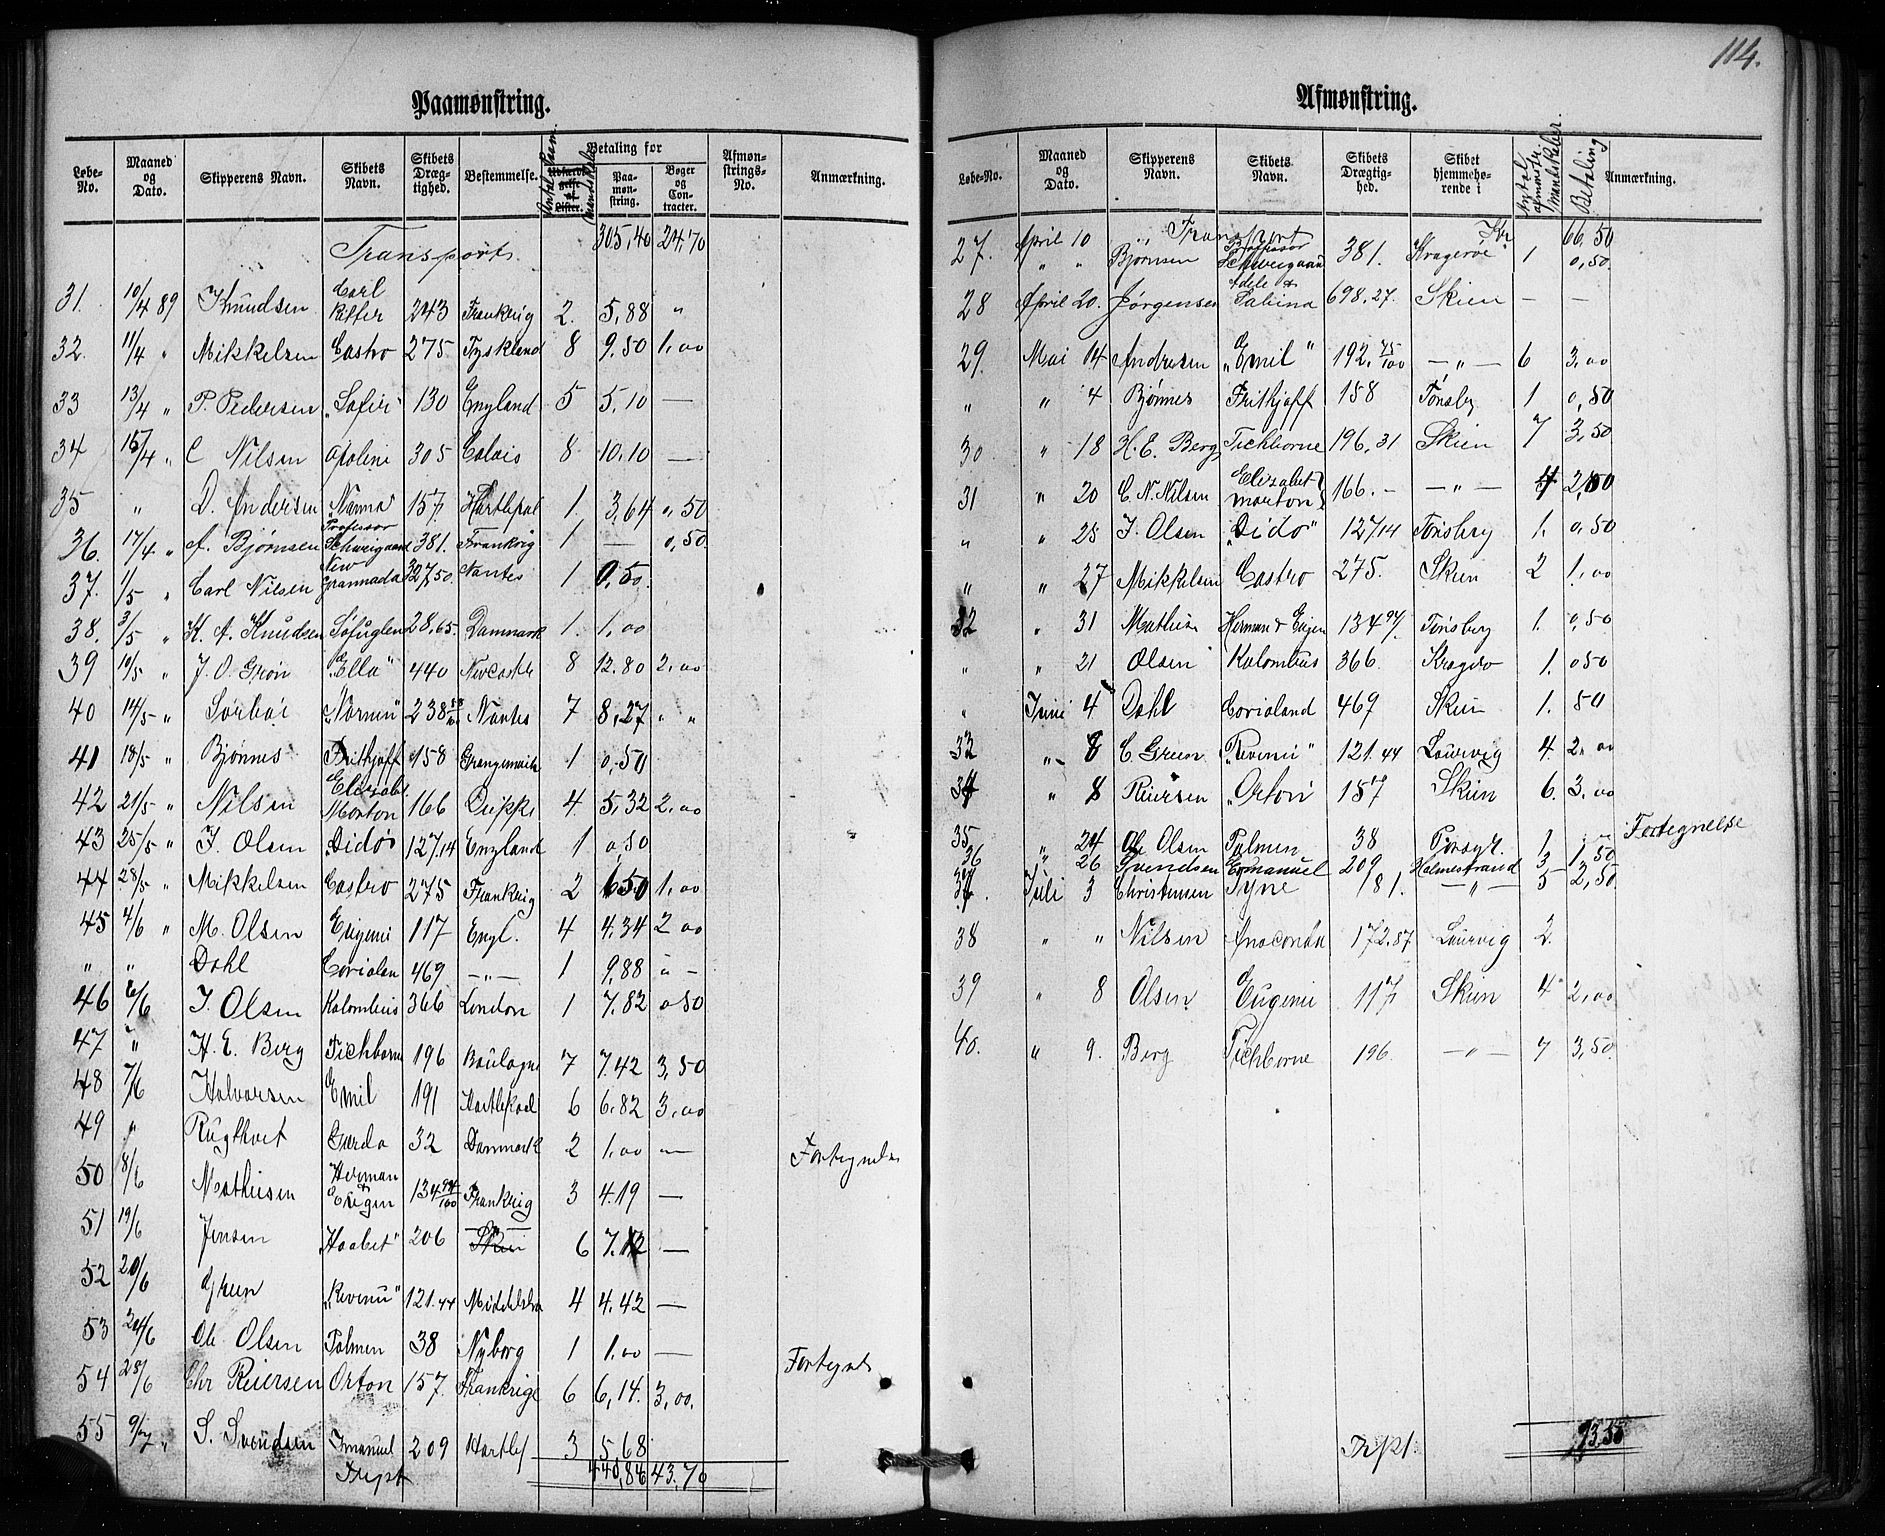 114.
Paamønstring.
Løbe-No. Maaned og Dato. Skipperens Navn. Skibets Navn. Skibets Drægtighed. Bestemmelse. Betaling for Paamønstring. Bøger og Contracter. Afmønstrings-No. Anmærkning.
Transport 305,40 24,70
31. 10/4 89 Knudsen Carl Ritter 243 Frankrig 2. 5,88 "
32. 11/4 " Mikkelsen Castro 275 Tyskland 8 9,50 1,00
33 13/4 " P. Pedersen "Safir" 130 England 5 5,10 —
34 15/4 " C Nilsen Apoline 305 Calais 8 10.10 —
35 " D. Andersen Nanna 157 Hartlepol 1. 3,64 " 50
36. 17/4 " A. Bjørnsen Professor Schweigaard 381. Frankrig 1 — 0,50
37. 1/5 " Carl Nilsen New Grannada 327,50. Nantes 1 0,50.
38. 3/5 " K. A. Knudsen Søfuglen 28,65. Danmark 1. 1,00
39 10/5 " J. O. Grøn "Ella" 440 Newcastle 8 12.80 2,00
40 14/5 " Sørbøe "Nornen" 238 Nantes 7 8,27 " "
41 18/5 " Bjønnes Frithjoff 158 Grangemouth 1 0,50
42 21/5 " Nilsen Elizabet Morton 166 Dieppe 4. 5,32 2,00
43 25/5 " J. Olsen "Dido" 127.14 England 1 0,50
44 28/5 " Mikkelsen Castro 275 Frankrig 2 6.50 1,00
45 4/6 " M. Olsen Eugeni 117 Engl. 4 4.34 2 00
" " Dahl Coriolan 469 — " — 1 9,88 " -
46 6/6 J. Olsen Kolombus 366 London 1 7.82 0 50
47 " H. E. Berg Tichborne 196 Boulogne 7 7.42 3,50
48 7/6 Halvorsen Emil 191 Hartlepool 6 6.82 3,00
49 " Rugtvet Gerda 32 Danmark 2 1.00 — Fortegnelse
50 8/6 Mathisen Herman & Eugen 134 94/100 Frankrig 3 4.19 —
51 19/6 Jensen "Haabet" 206 Skien 6 7.12 —
52 20/6 Green "Revenu" 121.44 4 4.42 —
53 24/6 Ole Olsen Palmen 38 Nyborg 1 1.00 — Fortegnels
54 28/6 Chr Reiersen Orton 157. Frankrige 6 6,14. 3,00.
55 9/7 " S. Svendsen Imanuel 209 Hartlep 3 5,68
Trspt 440,86 43,70
Afmønstring.
Løbe-No. Maaned og Dato. Skipperens Navn. Skibets Navn. Skibets Drægtighed. Skibet hjemmehørende i Antal afmønstr. Mandskaber. Betaling Anmærkning.
April 10 " Transport Kr 66.50
27. " " Bjørnsen Professor Schweigaard 381. Kragerøe 1 0,50.
28 April 20. Jørgensen Adele & Sabina 698,27. Skien — —
29. Mai 14 Andresen "Emil" 192. 45/100 — " — 6 3,00
" " 4 Bjønnes Frithjoff 158 Tønsbg 1 0,50
30 " 18 H. E. Berg Tichborne 196,31 Skien 7 3,50
31 " 20 C. N. Nilsen Elizabet Morton 166. - — " — 4
" " 25 J. Olsen "Dido" 127.14 Tønsberg 1. 0,50
" " 27 Mikkelsen Castro 275. Skien 2 1.00
32 " 31 Mathisen Herman & Eugen 134 94/. Tønsberg 1. 0,50
" " 21 Olsen Kolombus 366. Kragerø 1. 0 50
" Juni 4 Dahl Corioland 469 Skien 1. 50
33 " 8 C. Green "Revenu" 121.44 Laurvig 4. 2. 00
34 " 8 Reiersen "Orton" 157 Skien 6. 3.00
35 " 24 Ole Olsen Palmen 38 Porsgr. 1 — Fortegnelse
36 " 26 Svendsen Emanuel 209 Holmestrand 3 1,50
37. Juli 3 Christensen Tyne 181. — " — 5 2,50.
38 " " Nilsen Anaconda 172.87 Laurvig 2.
39 " 8 Olsen Eugenie 117 Skien 4 2,00
40. " 9. Berg Tichborne 196 — " — 7 3,50
Trspt. 93,50